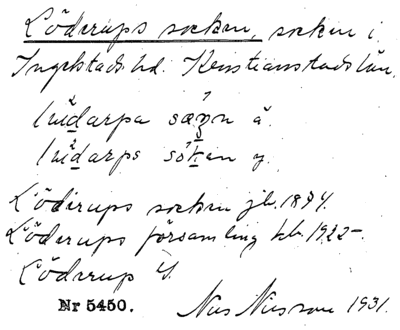 Löderups socken, socken i
Ingelstads hd. Kristianstads län.
sǫkən y.
Löderups socken jb. 1894.
Löderups församling kb. 1922–
Löderup
Nr 5450. Nils Nilsson 1931.